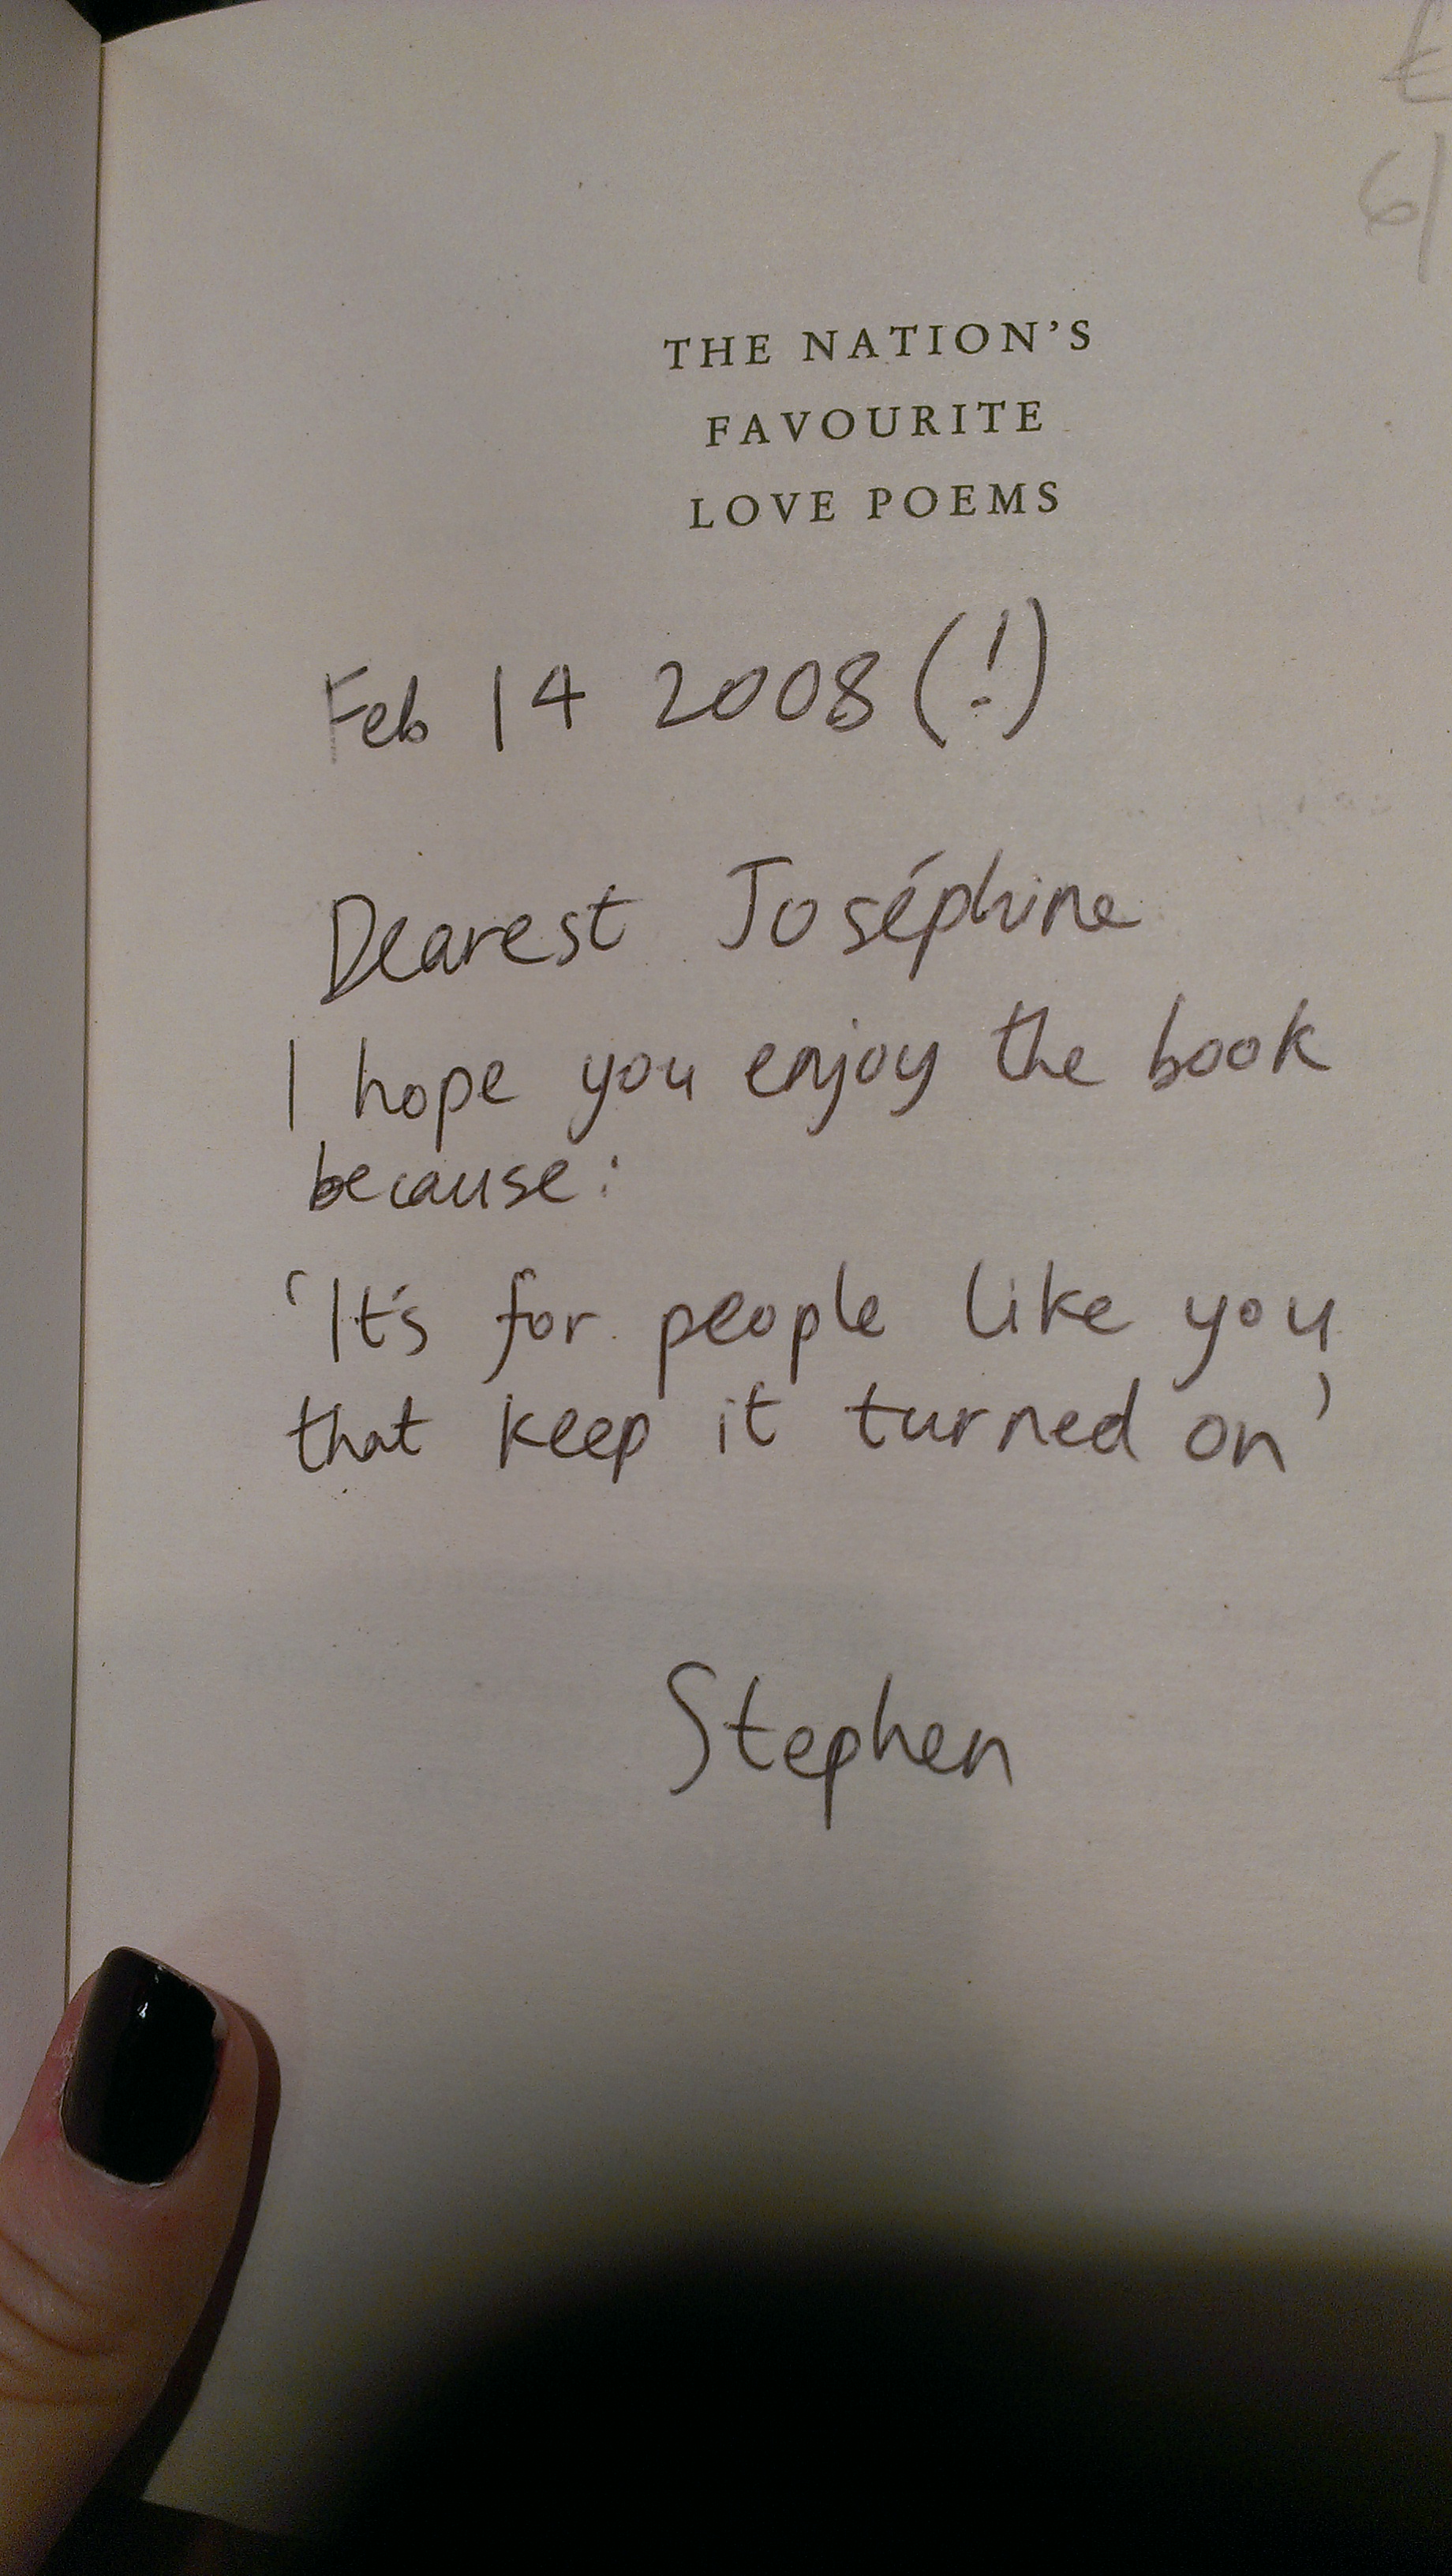 £
6/
THE NATION'S
FAVOURITE
LOVE POEMS
Feb 14 2008 (!)
Dearest Joséphine
I hope you enjoy the book
because:
'It's for people like you
that keep it turned on'
Stephen